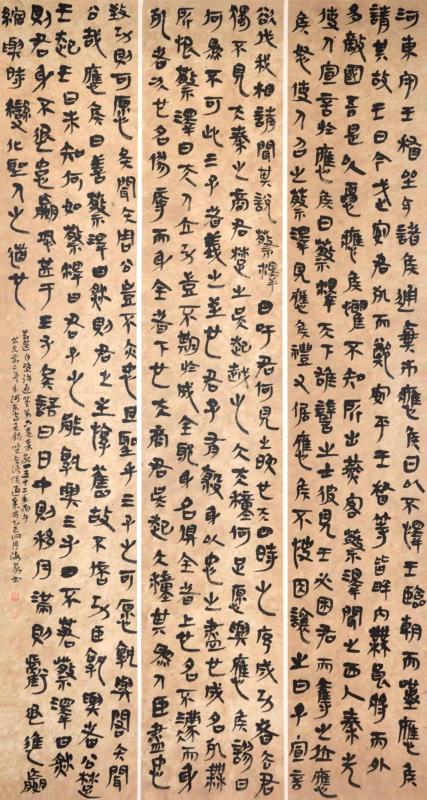 河東守王稽坐與諸侯通棄市應侯日以不懌王臨朝而嘆應侯
請其故王曰今武安君死而鄭安平王稽等皆畔內無良將而外
多敵國吾是以憂應侯懼不知所出燕客蔡澤聞之西入秦先
使人宣言於應侯曰蔡澤天下雄辯之士彼見王必困君而奪之位應
侯怒使人召之蔡澤見應侯禮又倨應侯不快因讓之曰子宣言
欲代我相請聞其說蔡澤曰吁君何見之晚也夫四時之序成功者去君
獨不見夫秦之商君楚之吳起越之大夫種何足愿與應侯謬曰
何為不可此三子者義之至也君子有殺身以忠之盡也成名死無
所恨蔡澤曰夫人立功豈不期於成全耶身名俱全者上也名可法而身
死者次也名僇辱而身全者下也夫商君吳起大夫種其為人臣盡忠
致功則可愿矣閎夭周公豈不亦忠且聖乎三子之可愿孰與閎夭周
公哉應侯曰善蔡澤曰然則君之主惇厚舊故不倍功臣孰與孝公楚
王越王曰未知何如蔡澤曰君之功能孰與三子曰不若蔡澤曰然
則君身不退患恐甚于三子矣語曰日中則移月滿則虧退進嬴
縮與時變化聖人之道也
節選自資治通鑑
乙巳四月